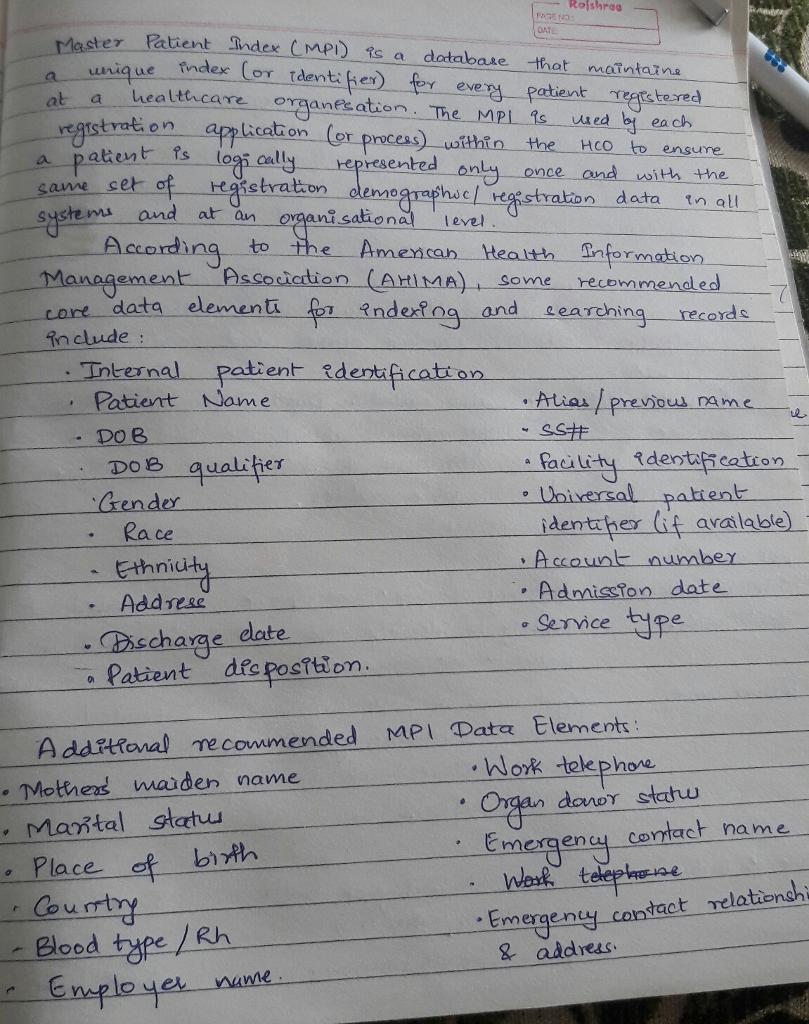 Rajshree
PAGE NO:
DATE:
Master Patient Index (MPI) is a database that maintains
a unique index (or identifier) for every patient registered
at a healthcare organisation. The MPI is used by each
registration application (or process) within the HCO to ensure
a patient is logically represented only once and with the
same set of registration demographic/registration data in all
systems and at an organisational level.
According to the American Health Information
Management Association (AHIMA), some recommended
core data elements for indexing and searching records
include:
· Internal patient identification
· Patient Name
· DOB
· DOB qualifier
· Gender
· Race
- Ethnicity
· Address
· Discharge date
· Patient disposition.
· Alias/previous name
- SS#
· Facility identification
· Universal patient
identifier (if available)
· Account number
· Admission date
· Service type
Additional recommended MPI Data Elements:
· Mothers' maiden name
· Marital status
· Place of birth
· Country
- Blood type/Rh
- Employer name.
· Work telephone
· Organ donor status
· Emergency contact name
· Work telephone
· Emergency contact relationshi
& address.